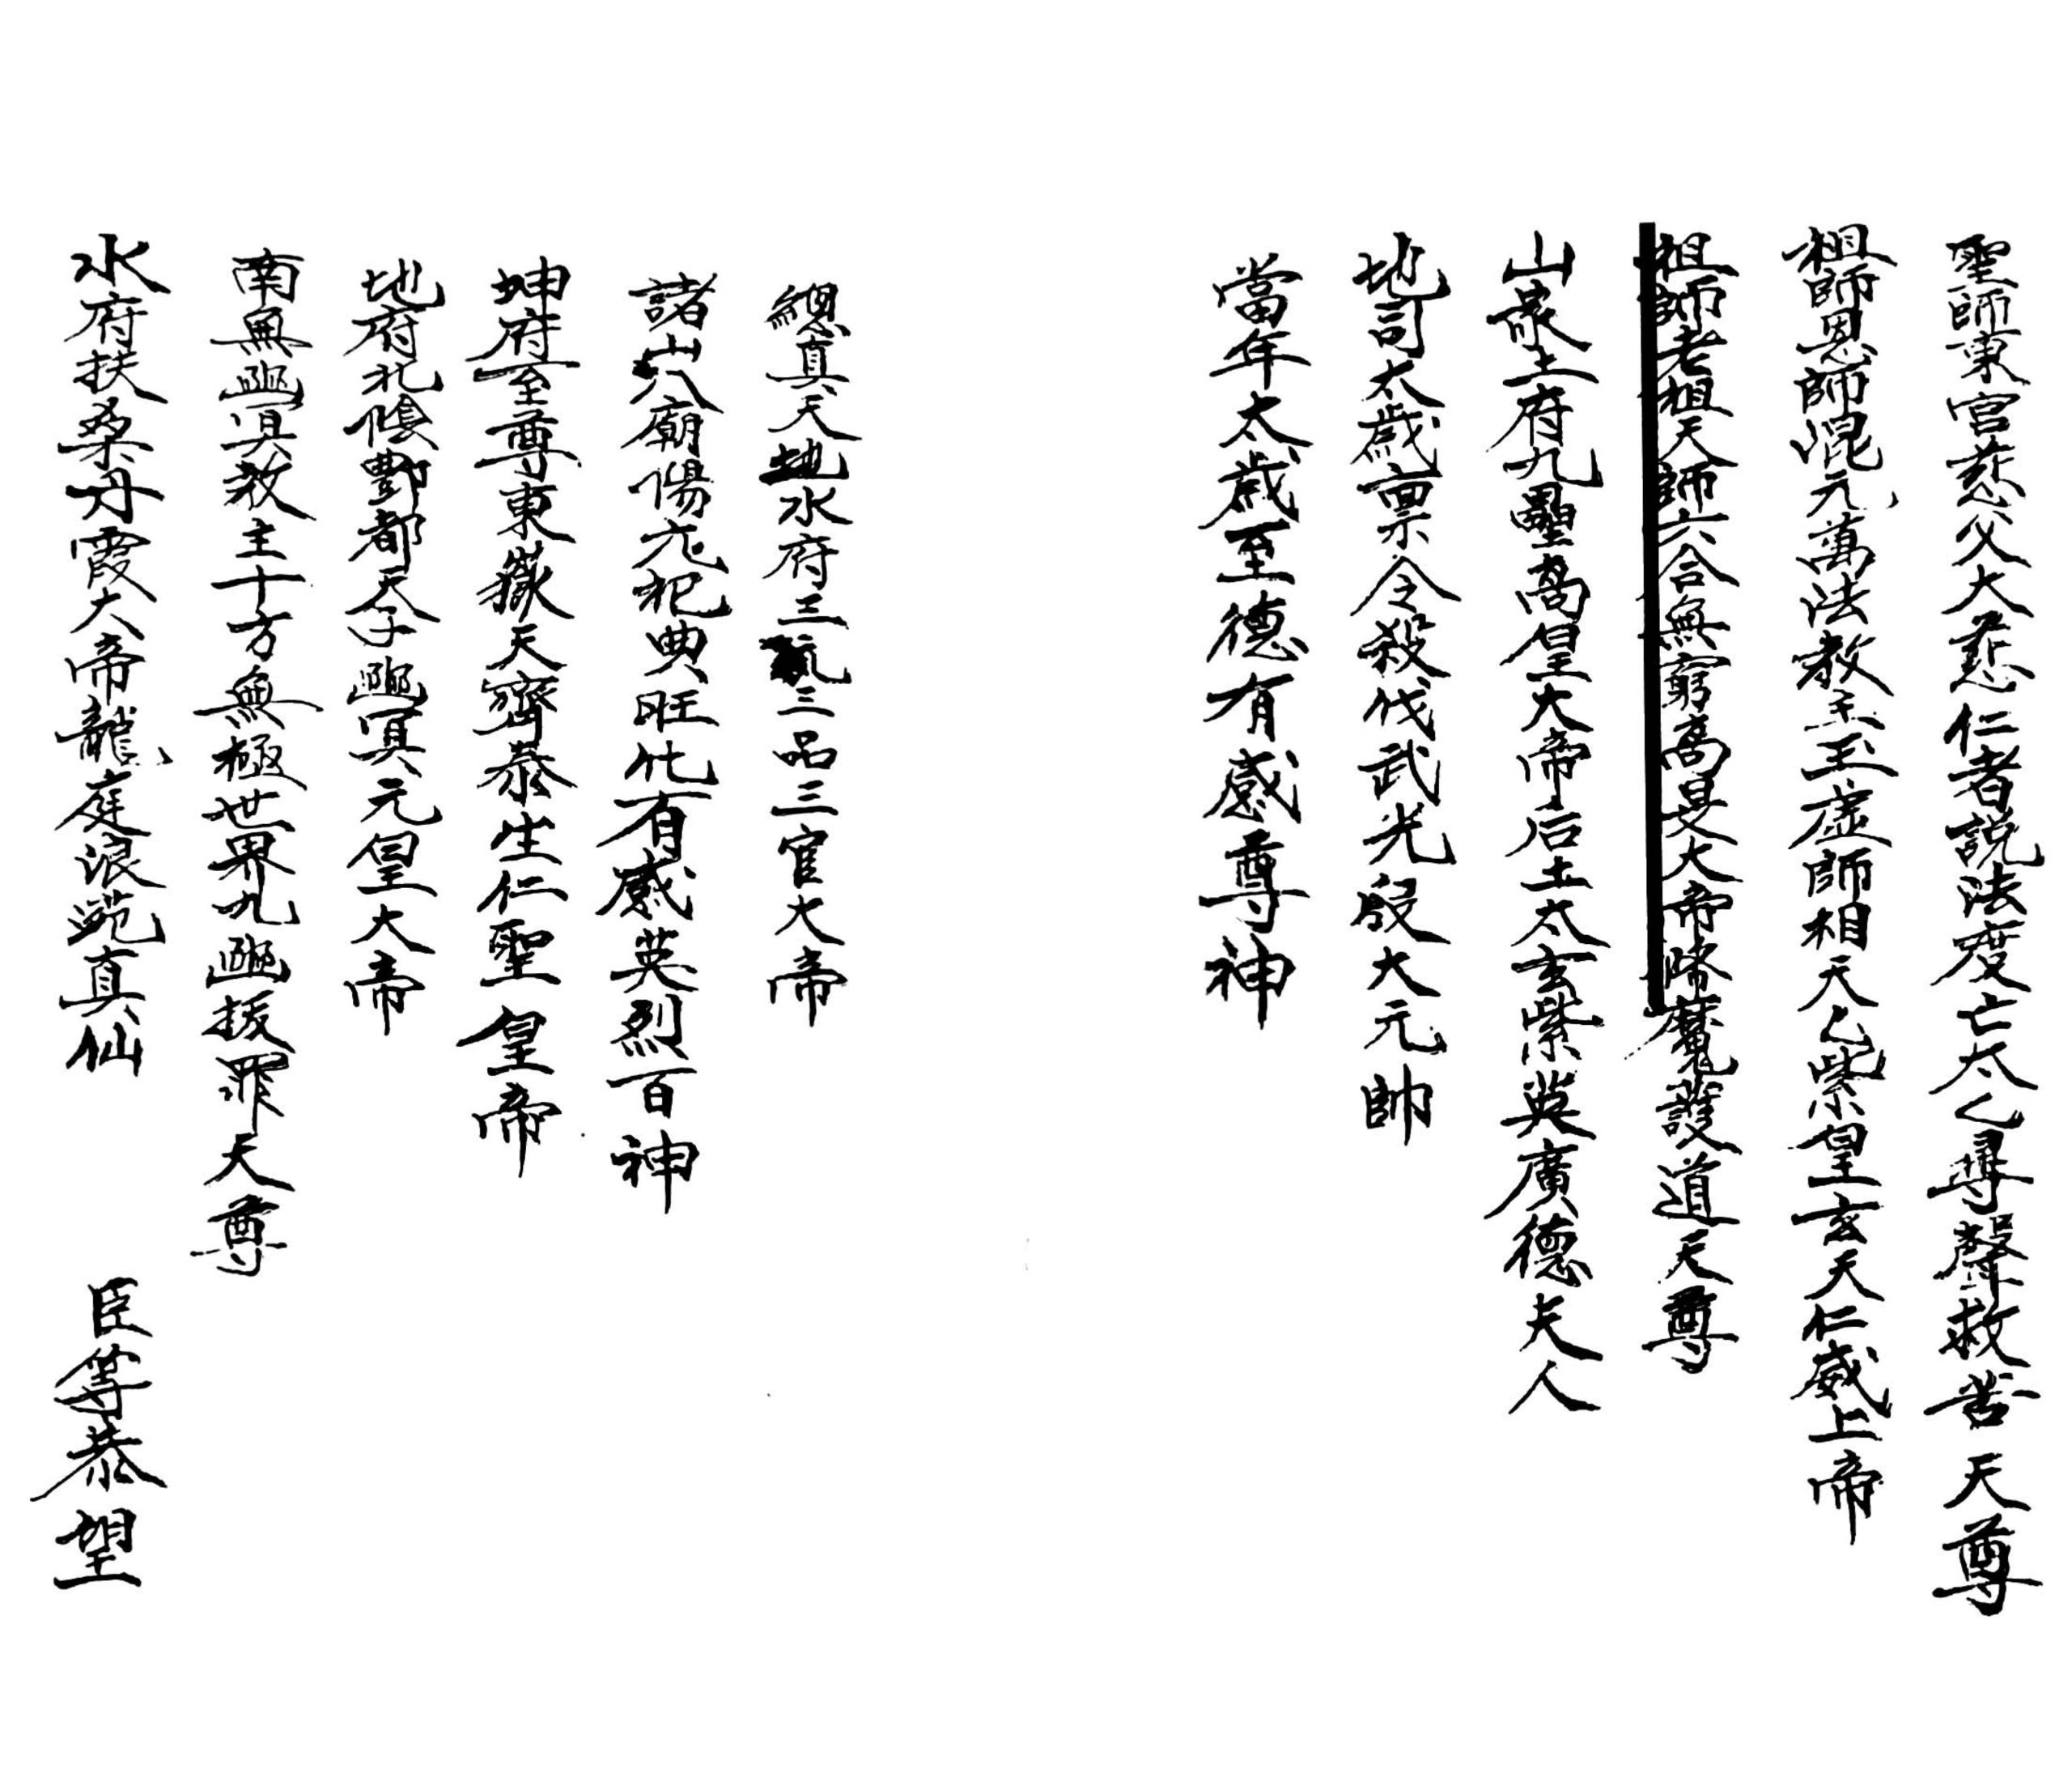 聖師東宮慈父大悲仁者説法度亡太乙尋聲救苦天尊
祖師恩師混元萬法教主玉虛師相天乙紫皇玄天仁威上帝
祖師老祖天師六合無窮高旻大帝降魔護道天尊
山泉土府九壘高皇大帝后土太玄紫英廣德夫人
地司太歲稟令殺伐武光殷大元帥
當年太歲至德有感尊神
總真天地水府三氣三品三官大帝
諸山八廟傷亡犯典旺化有感英烈百神
坤府至尊東嶽天齊泰生仁聖皇帝
地府北陰酆都天子幽冥元皇大帝
南無幽冥教主十方無極世界九幽拔罪天尊
水府扶桑丹霞大帝龍庭浪苑真仙 臣等恭望